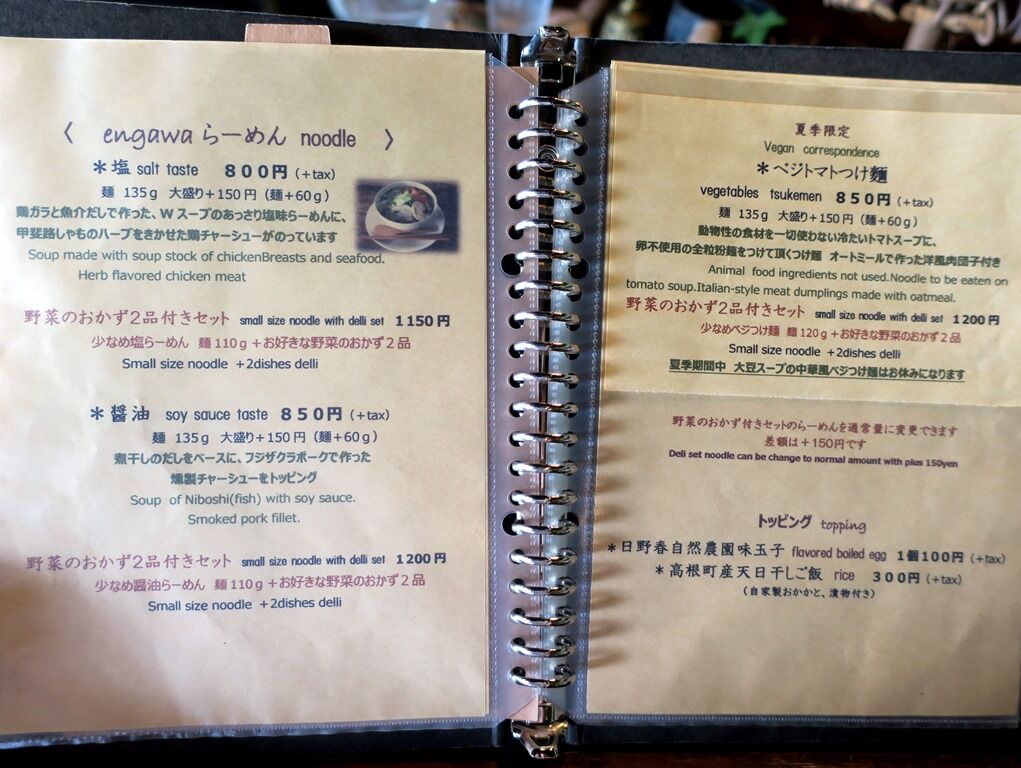 〈 engawa らーめん noodle 〉
＊塩 salt taste 800円 (+tax)
麺 135g 大盛り＋150円（麺＋60g）
鶏ガラと魚介だしで作った、Wスープのあっさり塩味らーめんに、
甲斐路しゃものハーブをきかせた鶏チャーシューがのっています
Soup made with soup stock of chickenBreasts and seafood.
Herb flavored chicken meat
野菜のおかず2品付きセット small size noodle with delli set 1150円
少なめ塩らーめん 麺110g＋お好きな野菜のおかず2品
Small size noodle +2dishes delli
＊醤油 soy sauce taste 850円 (+tax)
麺 135g 大盛り＋150円（麺＋60g）
煮干しのだしをベースに、フジザクラポークで作った
燻製チャーシューをトッピング
Soup of Niboshi(fish) with soy sauce.
Smoked pork fillet.
野菜のおかず2品付きセット small size noodle with delli set 1200円
少なめ醤油らーめん 麺110g＋お好きな野菜のおかず2品
Small size noodle +2dishes delli
夏季限定
Vegan correspondence
＊ベジトマトつけ麺
vegetables tsukemen 850円 (+tax)
麺 135g 大盛り＋150円（麺＋60g）
動物性の食材を一切使わない冷たいトマトスープに、
卵不使用の全粒粉麺をつけて頂くつけ麺 オートミールで作った洋風肉団子付き
Animal food ingredients not used.Noodle to be eaten on
tomato soup.Italian-style meat dumplings made with oatmeal.
野菜のおかず2品付きセット small size noodle with delli set 1200円
少なめベジつけ麺 麺120g＋お好きな野菜のおかず2品
Small size noodle +2dishes delli
夏季期間中 大豆スープの中華風ベジつけ麺はお休みになります
野菜のおかず付きセットのらーめんを通常量に変更できます
差額は＋150円です
Deli set noodle can be change to normal amount with plus 150yen
トッピング topping
＊日野春自然農園味玉子 flavored boiled egg 1個100円 (+tax)
＊高根町産天日干しご飯 rice 300円 (+tax)
（自家製おかかと、漬物付き）